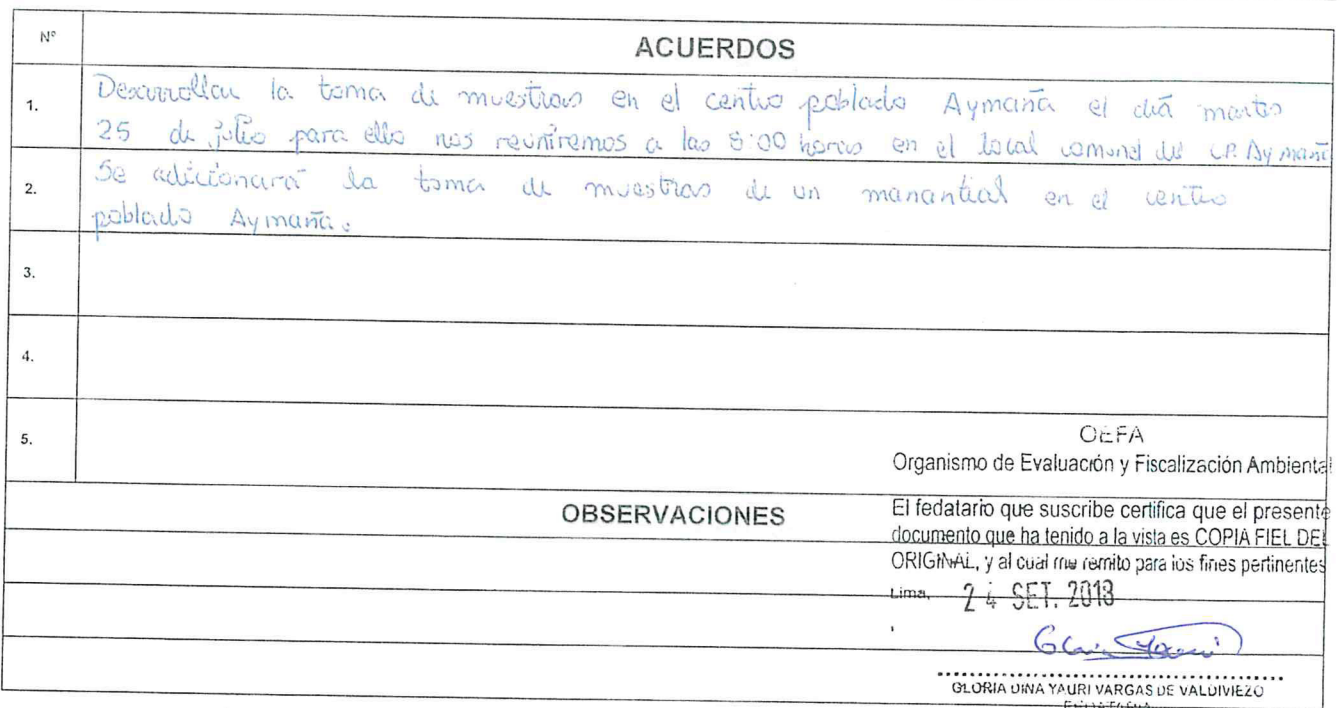 Nº
ACUERDOS
1.
Desarrollar la toma de muestras en el centro poblado Aymaña el día martes
25 de julio para ello nos reuniremos a las 8:00 horas en el local comunal del C.P. Aymaña
2.
Se adicionará la toma de muestras de un manantial en el centro
poblado Aymaña.
3.
4.
5.
OEFA
Organismo de Evaluación y Fiscalización Ambiental
OBSERVACIONES
El fedatario que suscribe certifica que el presente
documento que ha tenido a la vista es COPIA FIEL DEL
ORIGINAL, y al cual me remito para los fines pertinentes
Lima, 24 SET. 2018
GLORIA DINA YAURI VARGAS DE VALDIVIEZO
FEDATARIA